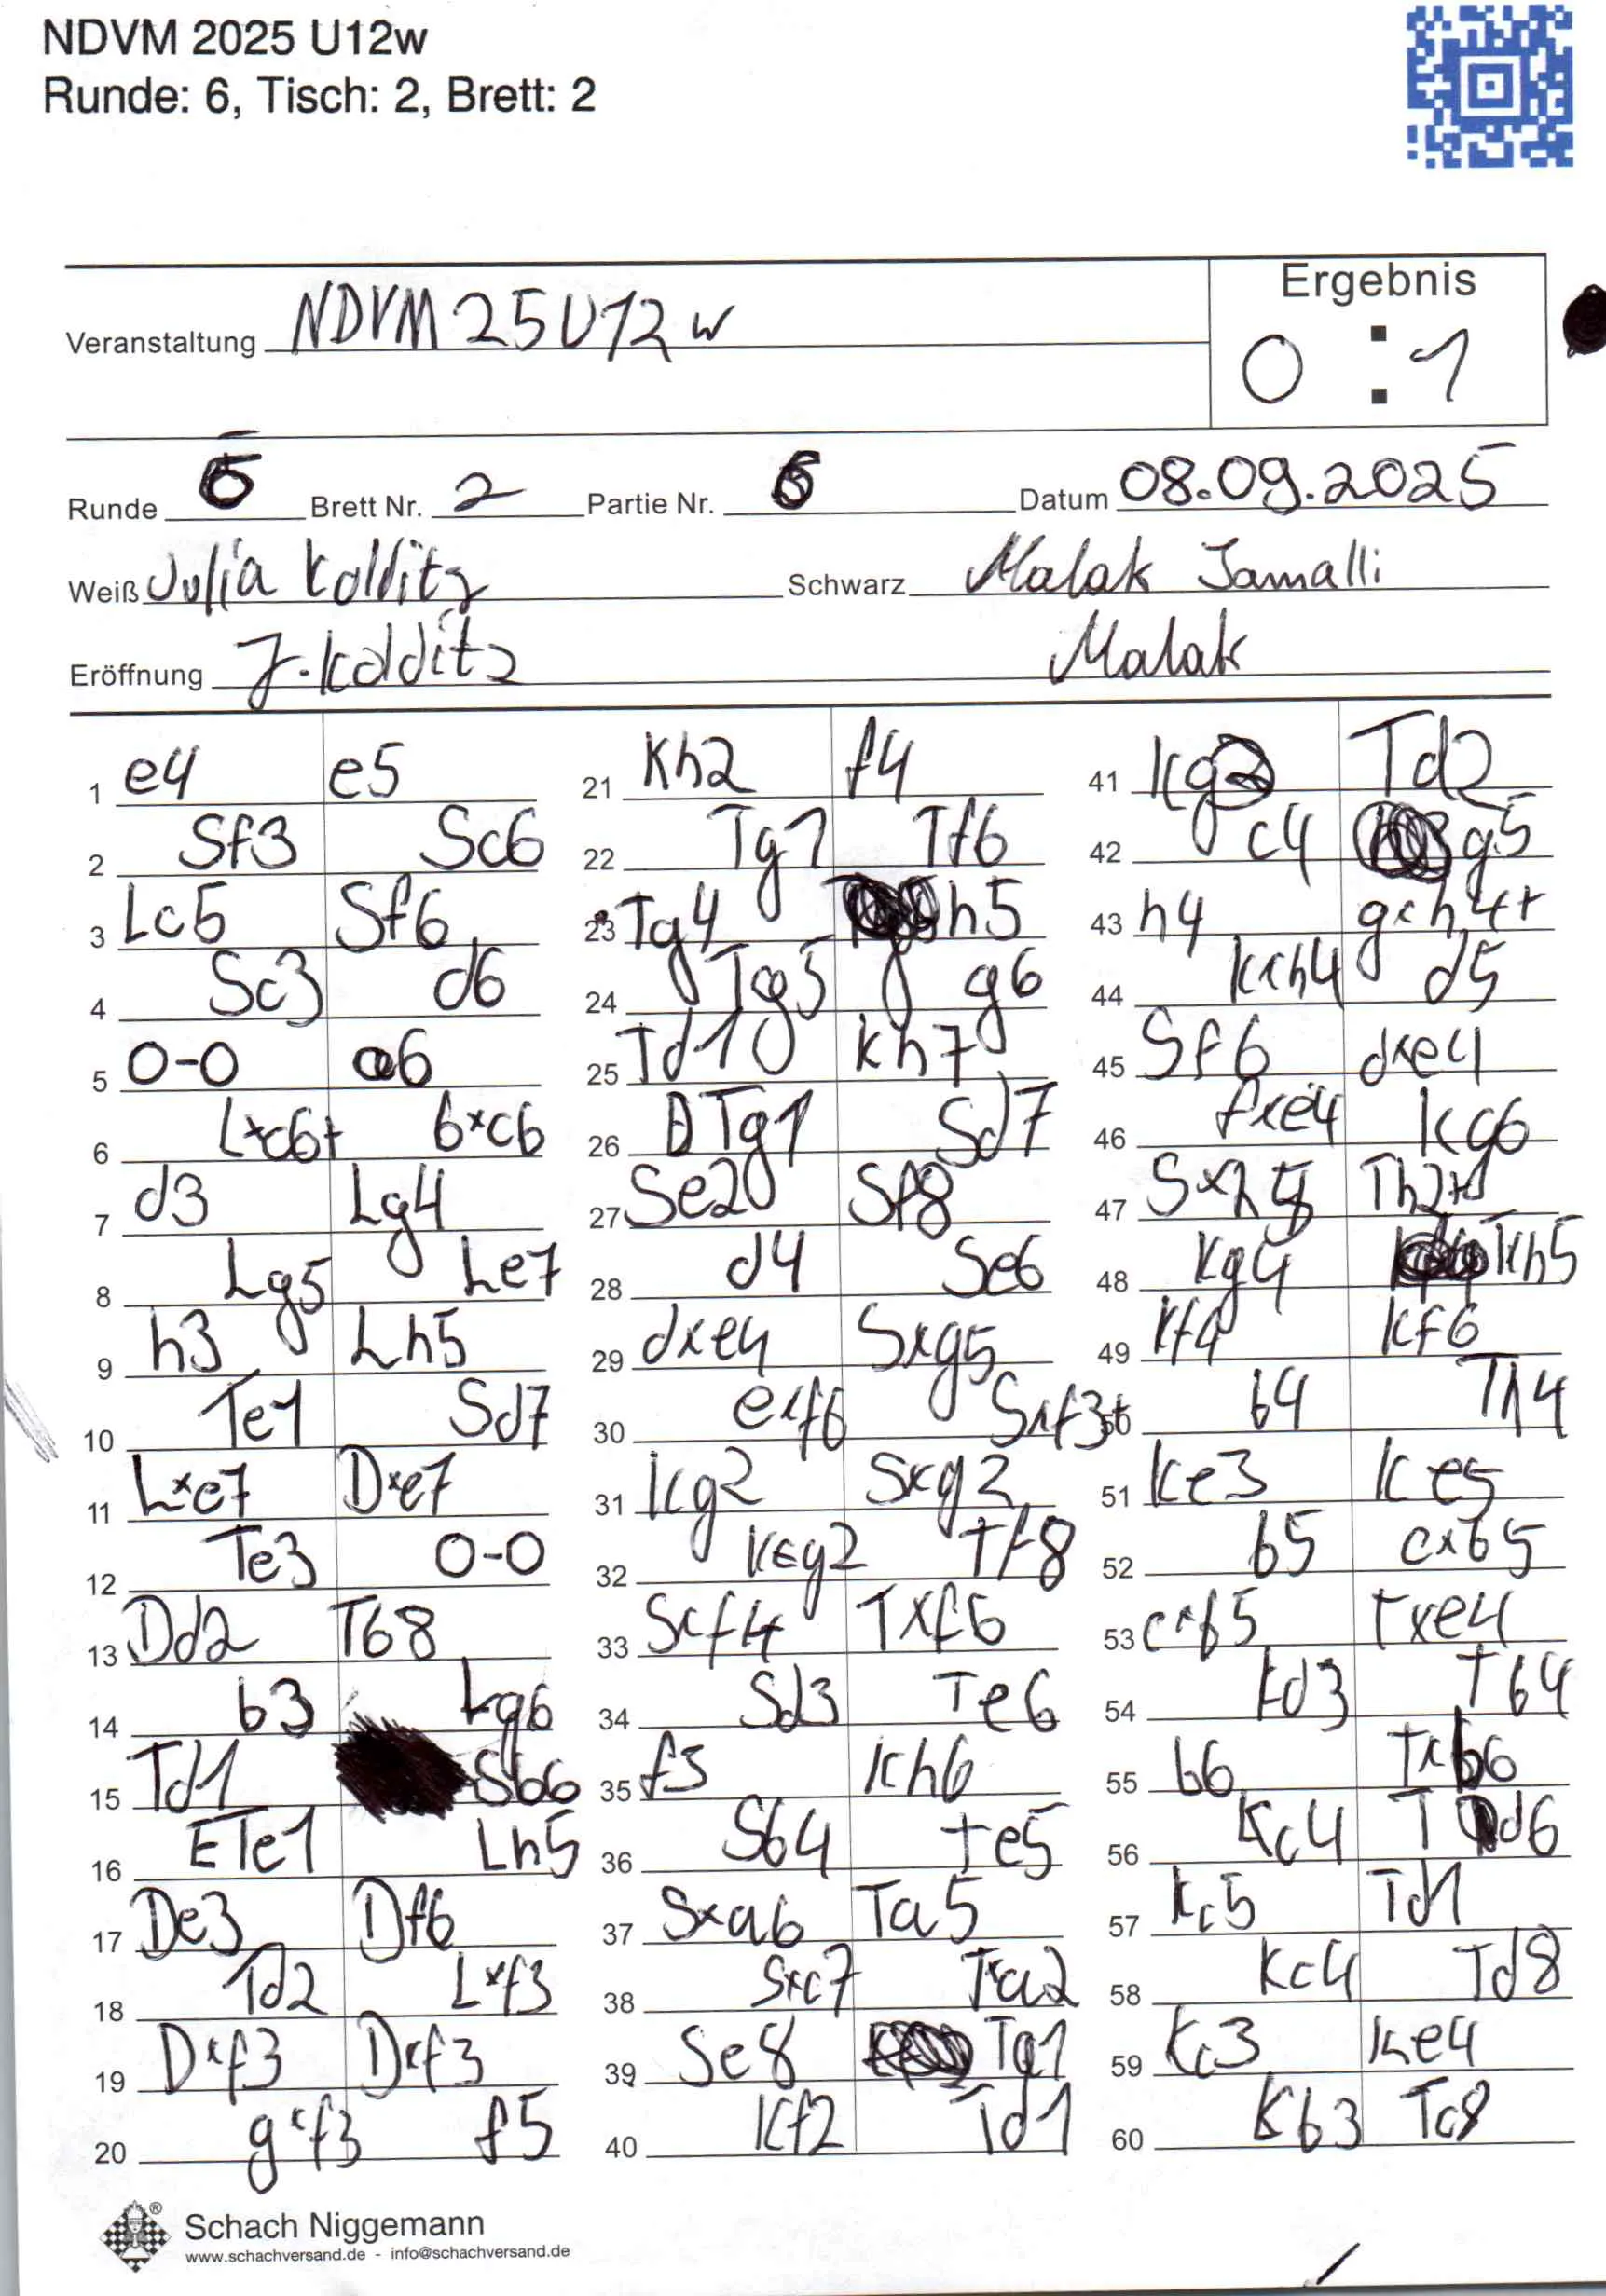 NDVM 2025 U12w
Runde: 6, Tisch: 2, Brett: 2
Ergebnis
Veranstaltung NDVM 25 U12 w
0 : 1
Runde 6 Brett Nr. 2 Partie Nr. 6 Datum 08.09.2025
Weiß Julia Kolditz Schwarz Malak Jamalli
Eröffnung J. Kolditz Malak
1 e4 e5
2 Sf3 Sc6
3 Lc5 Sf6
4 Sc3 d6
5 0-0 a6
6 Lxc6+ bxc6
7 d3 Lg4
8 Lg5 Le7
9 h3 Lh5
10 Te1 Sd7
11 Lxe7 Dxe7
12 Te3 0-0
13 Dd2 Tb8
14 b3 Lg6
15 Td1 Sb6
16 ETe1 Lh5
17 De3 Df6
18 Td2 Lxf3
19 Dxf3 Dxf3
20 gxf3 f5
21 Kh2 f4
22 Tg1 Tf6
23 Tg4 h5
24 Tg5 g6
25 Td1 Kh7
26 DTg1 Sd7
27 Se2 Sf8
28 d4 Se6
29 dxe4 Sxg5
30 exf6 Sxf3+
31 Kg2 Sxg2
32 Kxg2 Tf8
33 Sxf4 Txf6
34 Sd3 Te6
35 f3 Kh6
36 Sb4 Te5
37 Sxa6 Ta5
38 Sxc7 Txa2
39 Se8 Ta1
40 Kf2 Td1
41 Kg2 Td2
42 c4 g5
43 h4 gxh4+
44 Kxh4 d5
45 Sf6 dxe4
46 fxe4 Kg6
47 Sxh5 Th2+
48 Kg4 Txh5
49 Kf4 Kf6
50 b4 Th4
51 Ke3 Ke5
52 b5 cxb5
53 cxb5 Txe4
54 Kd3 Tb4
55 b6 Txb6
56 Kc4 Td6
57 Kc5 Td1
58 Kc4 Td8
59 Kc3 Ke4
60 Kb3 Tc8
Schach Niggemann
www.schachversand.de - info@schachversand.de